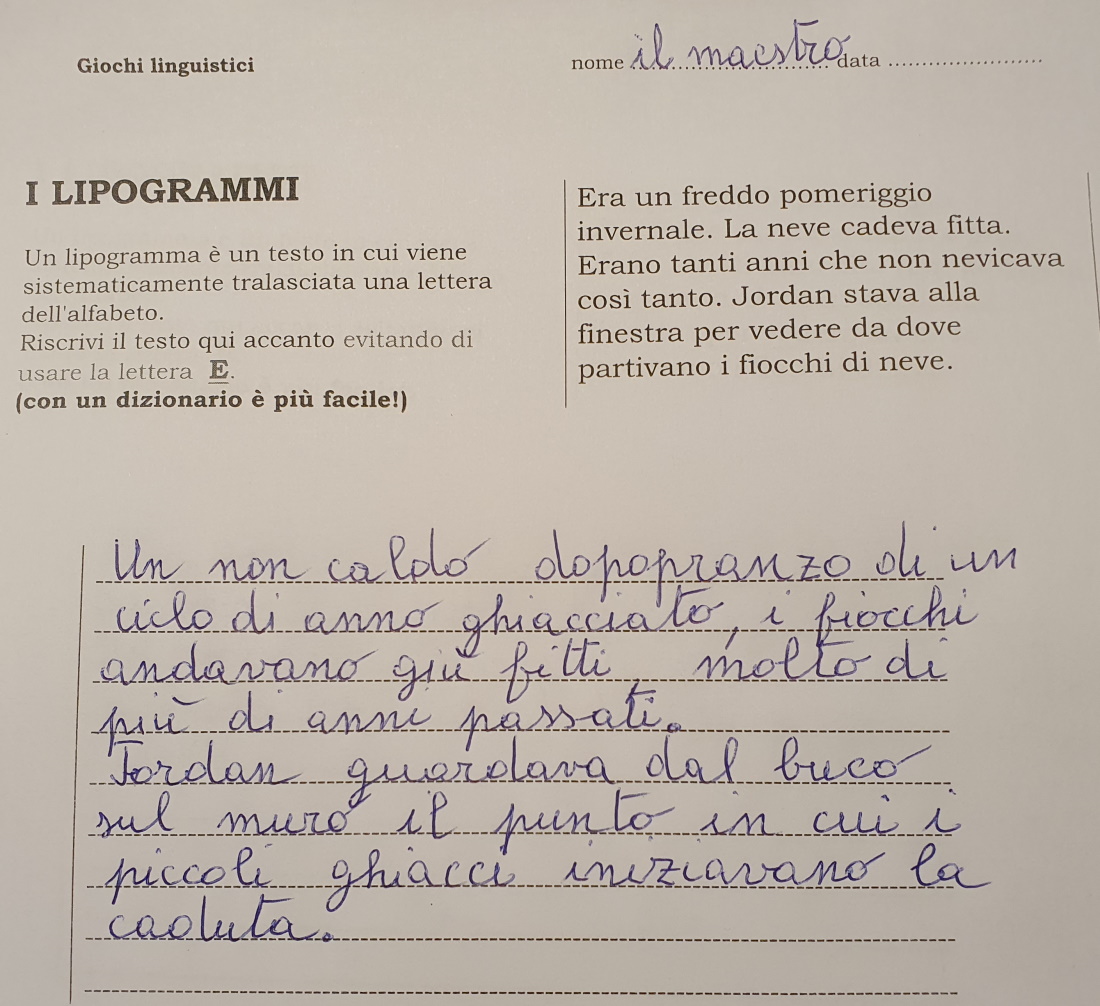 Giochi linguistici
nome il maestro data ........................
I LIPOGRAMMI
Un lipogramma è un testo in cui viene
sistematicamente tralasciata una lettera
dell'alfabeto.
Riscrivi il testo qui accanto evitando di
usare la lettera E.
(con un dizionario è più facile!)
Era un freddo pomeriggio
invernale. La neve cadeva fitta.
Erano tanti anni che non nevicava
così tanto. Jordan stava alla
finestra per vedere da dove
partivano i fiocchi di neve.
Un non caldo dopopranzo di un
ciclo di anno ghiacciato, i fiocchi
andavano giù fitti, molto di
più di anni passati.
Jordan guardava dal buco
sul muro il punto in cui i
piccoli ghiacci iniziavano la
caduta.